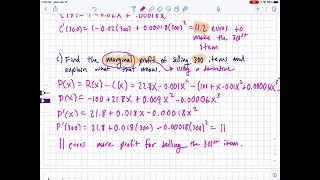 C'(x) = 1 - 0.02x + .00018x²
C'(300) = 1 - 0.02(300) + .00018(300)² = 11.2 euros to
make the 301st
item
c) Find the marginal profit of selling 300 items and
explain what that means. using a derivative
P(x) = R(x) - C(x) = 22.8x - 0.001x² - (101 + x - 0.01x² + 0.00006x³)
P(x) = -100 + 21.8x + 0.009x² - 0.00006x³
P'(x) = 21.8 + 0.018x - 0.00018x²
P'(300) = 21.8 + 0.018(300) - 0.00018(300)² = 11
11 euros more profit for selling the 301st item.